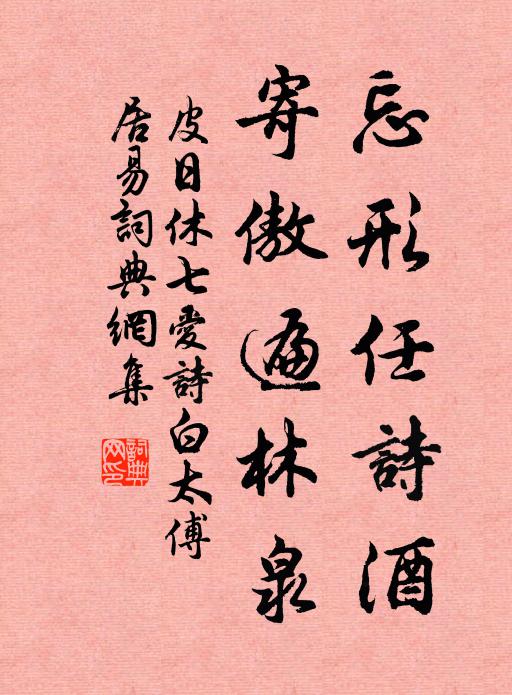 忘形任詩酒
寄傲遍林泉
皮日休七愛詩白太傅
居易詞典網集
詞典
网印